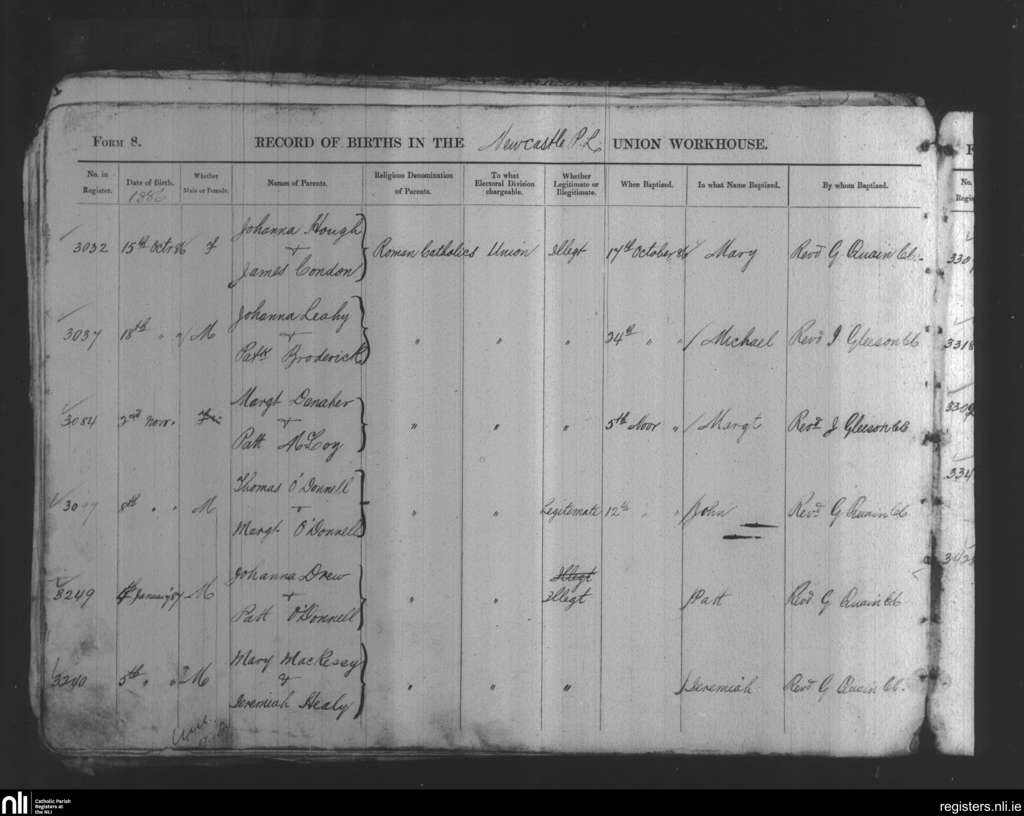 FORM 8. RECORD OF BIRTHS IN THE Newcastle P.L. UNION WORKHOUSE.
No. in Register. Date of Birth. Whether Male or Female. Names of Parents. Religious Denomination of Parents. To what Electoral Division chargeable. Whether Legitimate or Illegitimate. When Baptised. In what Name Baptised. By whom Baptised.
1886
Johanna Hough
3032 15th Octr 86 f + Roman Catholics Union Illegt 17th October 86 Mary Revd G Quain CC.
James Condon
Johanna Leahy
3037 18th " " M + " " " 24th " " Michael Revd J Gleeson CC
Patk Broderick
Margt Danaher
3084 2nd Novr. + " " " 5th Novr " Margt Revd J Gleeson CC
Patt McCoy
Thomas O'Donnell
8th " " M + " " Legitimate 12th " " John Revd G Quain CC
Margt O'Donnell
Johanna Drew Illegt
3249 January 87 M + " " Illegt Patt Revd G Quain CC
Patt O'Donnell
Mary Mackessy
3240 5th " " M + " " " Jeremiah Revd G Quain CC.
Jeremiah Healy
No.
Regis
330
3318
3309
334
nli Catholic Parish
Registers at
the NLI
registers.nli.ie